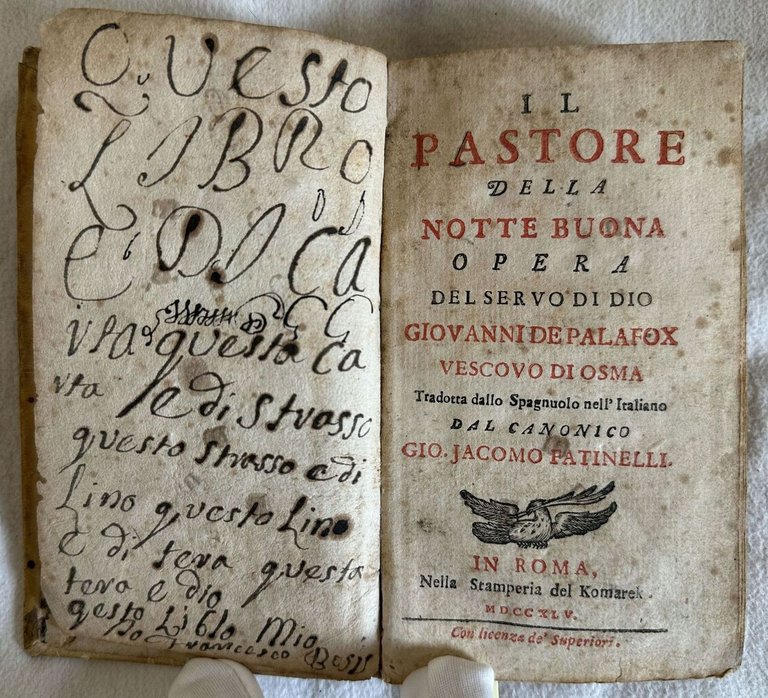 Questo
LIBRO
è DI Ca
vta questa Ca
vta e di strasso
questo strasso e di
Lino questo Lino
e di tera questa
tera e dio
qesto Liblo Mio
Francesco
IL
PASTORE
DELLA
NOTTE BUONA
OPERA
DEL SERVO DI DIO
GIOVANNI DE PALAFOX
VESCOVO DI OSMA
Tradotta dallo Spagnuolo nell' Italiano
DAL CANONICO
GIO. JACOMO FATINELLI.
IN ROMA,
Nella Stamperia del Komarek.
MDCCXLV.
Con licenza de' Superiori.